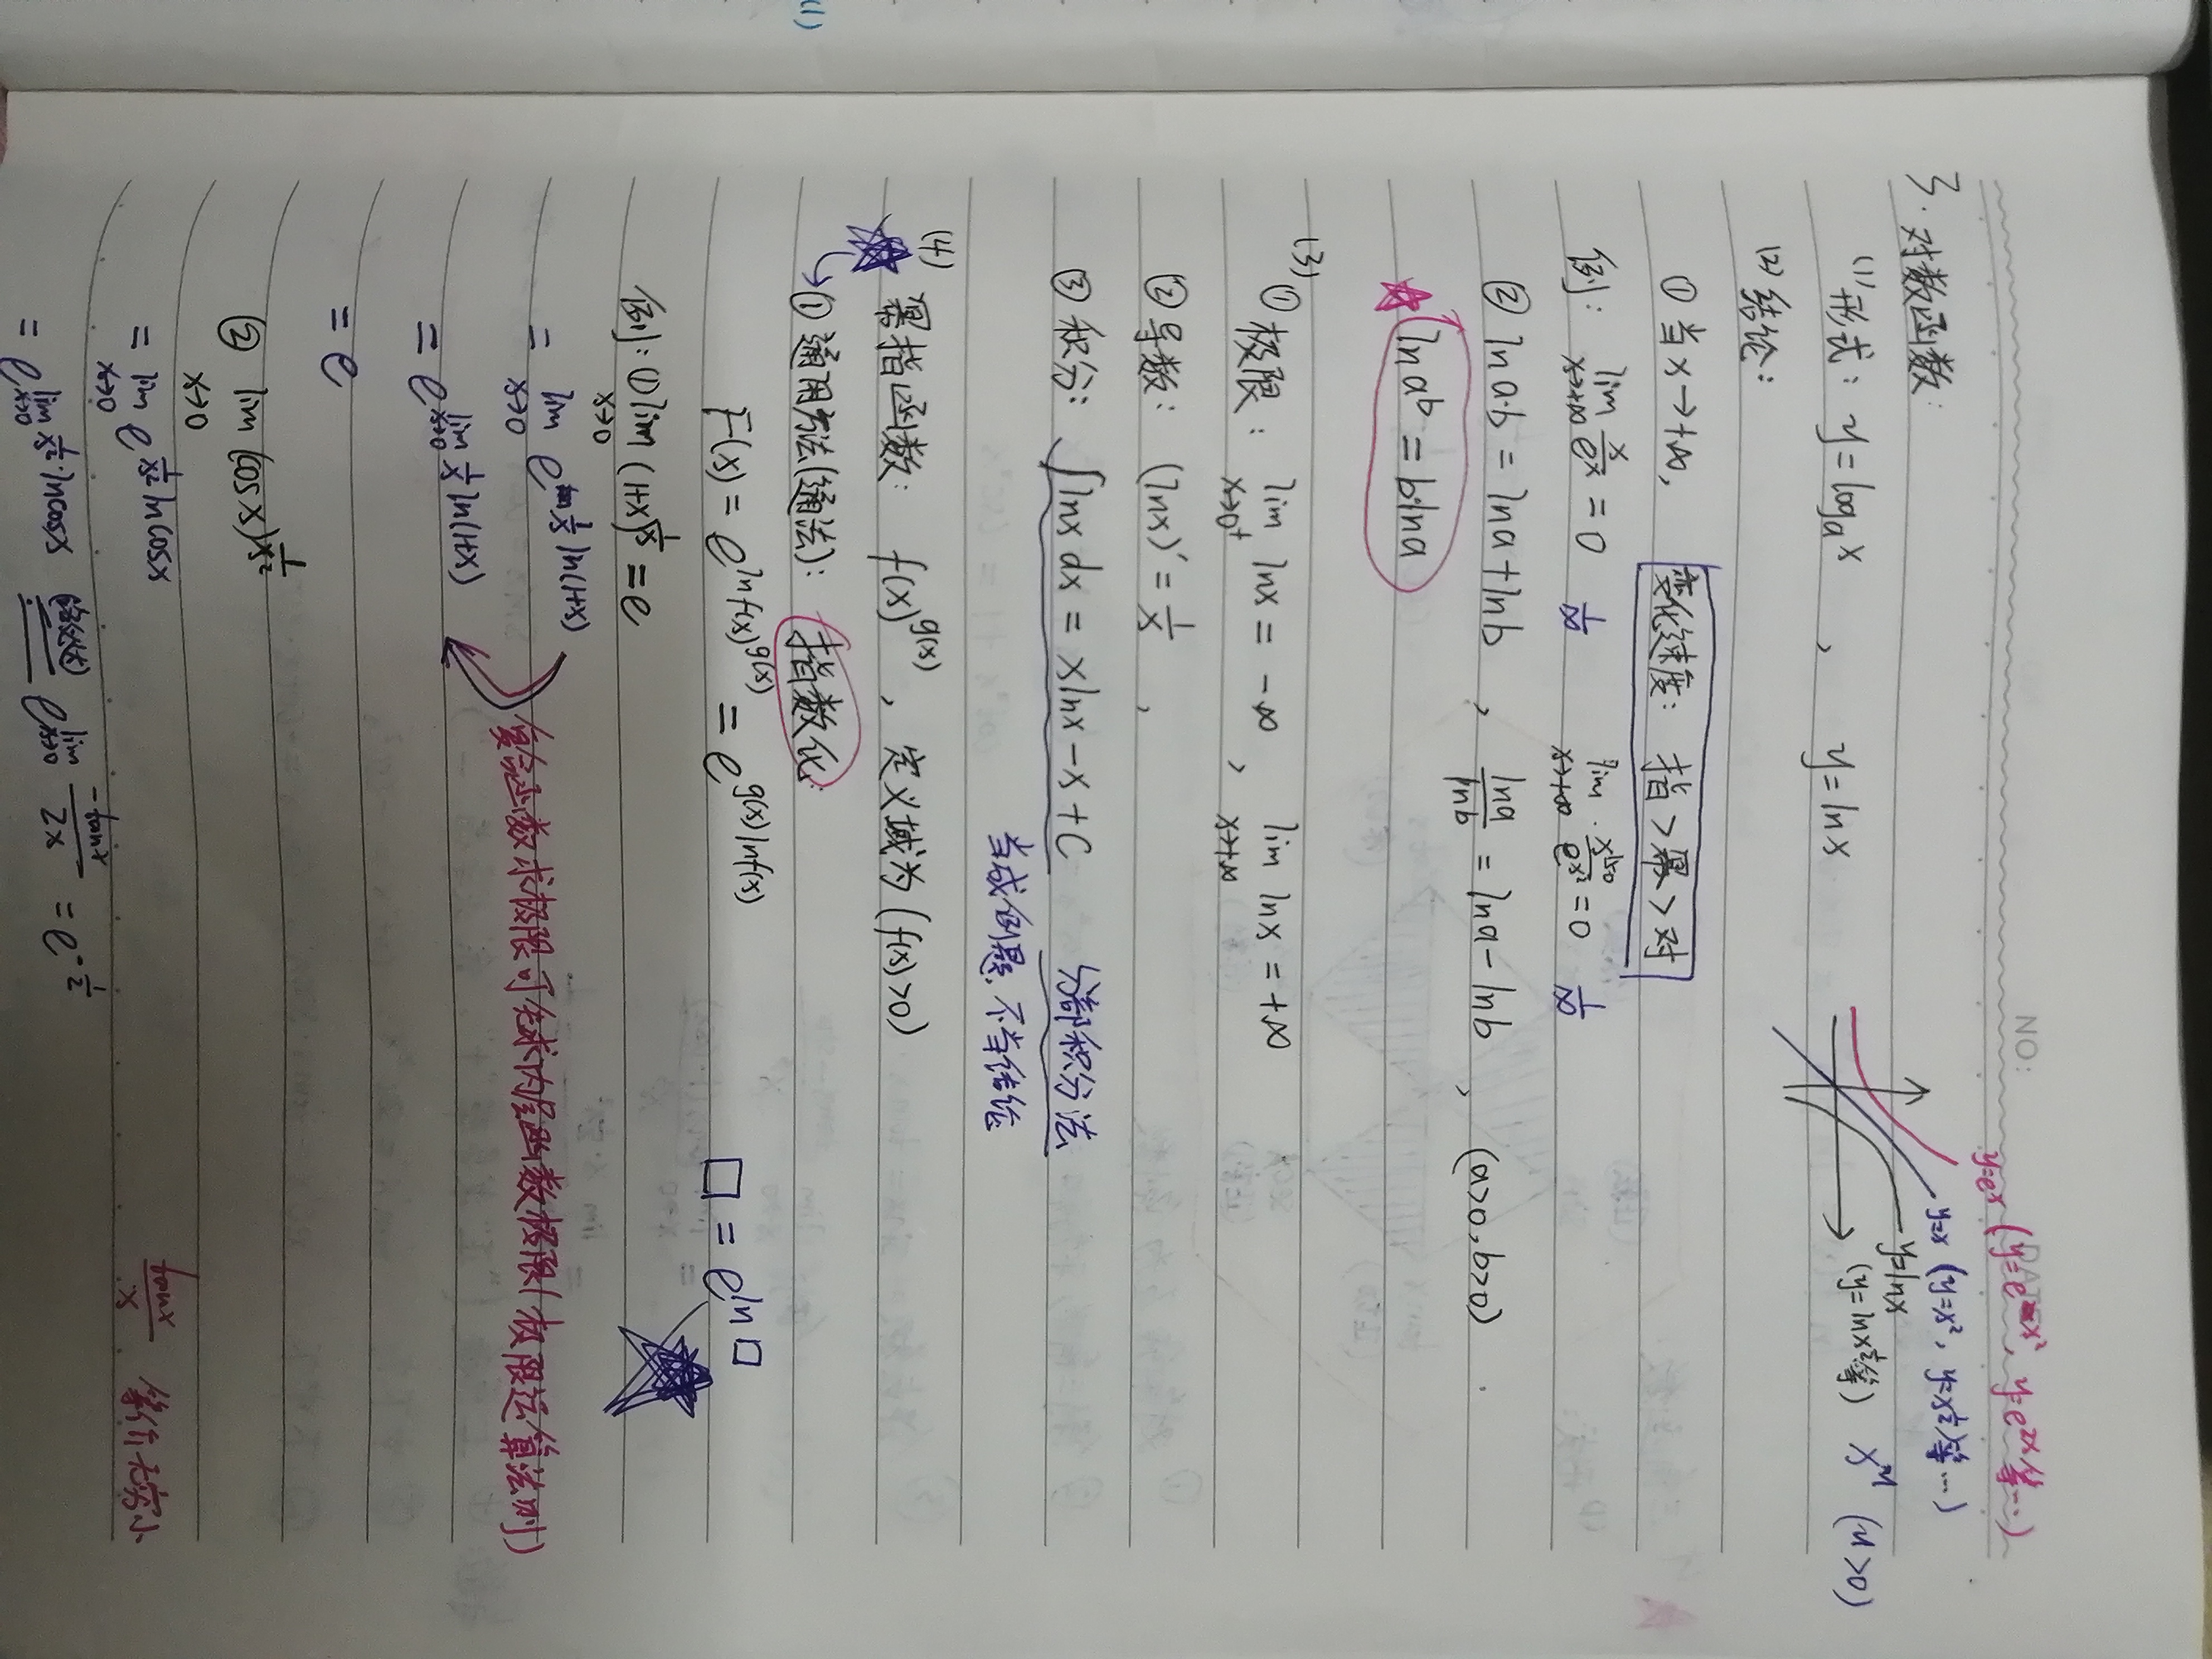 NO:
3. 对数函数:
(1) 形式: y=logₐx , y=lnx
y=eˣ (y=e^{x²}, y=e^{2x}等…)
y=x (y=x², y=x^{1/2}等…)
y=lnx
(y=lnx^{1/2}等) x^μ (μ>0)
(2) 结论:
① 当x→+∞, 变化速度: 指>幂>对
例: lim_{x→+∞} x/eˣ = 0 1/∞ lim_{x→+∞} x^{150}/e^{x²} = 0 1/∞
② lnab = lna+lnb , lna/lnb = lna-lnb , (a>0, b>0)
lna^b = b·lna
(3) ① 极限: lim_{x→0⁺} lnx = -∞ , lim_{x→+∞} lnx = +∞
② 导数: (lnx)' = 1/x ,
③ 积分: ∫lnx dx = xlnx-x+C 分部积分法
当成例题, 不当结论
(4) 幂指函数: f(x)^{g(x)} , 定义域为 (f(x)>0)
① 通用方法(通法): 指数化:
F(x) = e^{lnf(x)^{g(x)}} = e^{g(x)lnf(x)} □ = e^{ln□}
例: ① lim_{x→0} (1+x)^{1/x} = e
= lim_{x→0} e^{1/x ln(1+x)}
复合函数求极限可先求内层函数极限(极限运算法则)
= e^{lim_{x→0} 1/x ln(1+x)}
= e
② lim_{x→0} (cosx)^{1/x²}
= lim_{x→0} e^{1/x² lncosx}
tanx/x 等价无穷小
= e^{lim_{x→0} 1/x²·lncosx} (洛必达) e^{lim_{x→0} -tanx/2x} = e^{-1/2}